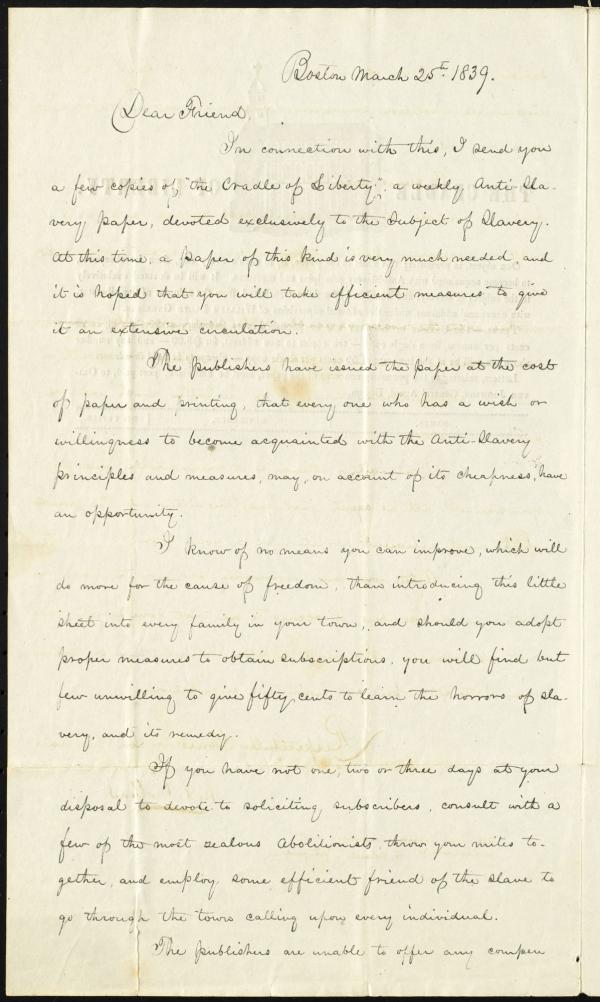 Boston March 25th. 1839.
Dear Friend,
In connection with this, I send you
a few copies of, "the Cradle of Liberty", a weekly, Anti-Sla-
very paper, devoted exclusively to the Subject of Slavery.
At this time, a paper of this kind is very much needed, and
it is hoped that you will take efficient measures to give
it an extensive circulation.
The publishers have issued the paper at the cost
of paper and printing, that every one who has a wish or
willingness to become acquainted with the Anti-Slavery
principles and measures, may, on account of its cheapness, have
an opportunity.
I know of no means you can improve, which will
do more for the cause of freedom, than introducing this little
sheet into every family in your town, and should you adopt
proper measures to obtain subscriptions, you will find but
few unwilling to give fifty cents to learn the horrors of sla-
very, and its remedy.
If you have not one, two or three days at your
disposal to devote to soliciting subscribers, consult with a
few of the most zealous Abolitionists, throw your mites to-
gether, and employ some efficient friend of the slave to
go through the town calling upon every individual.
The publishers are unable to offer any compen